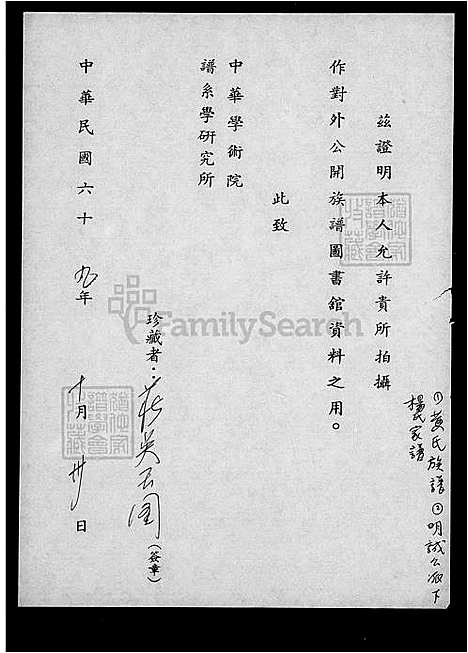 ①黃氏族譜②明誠公派下
楊氏家譜
茲證明本人允許貴所拍攝
作對外公開族譜圖書舘資料之用。
此致
中華學術院
譜系學研究所
珍藏者：莊吳玉圖(簽章)
中華民國六十九年十月卅日
FamilySearch